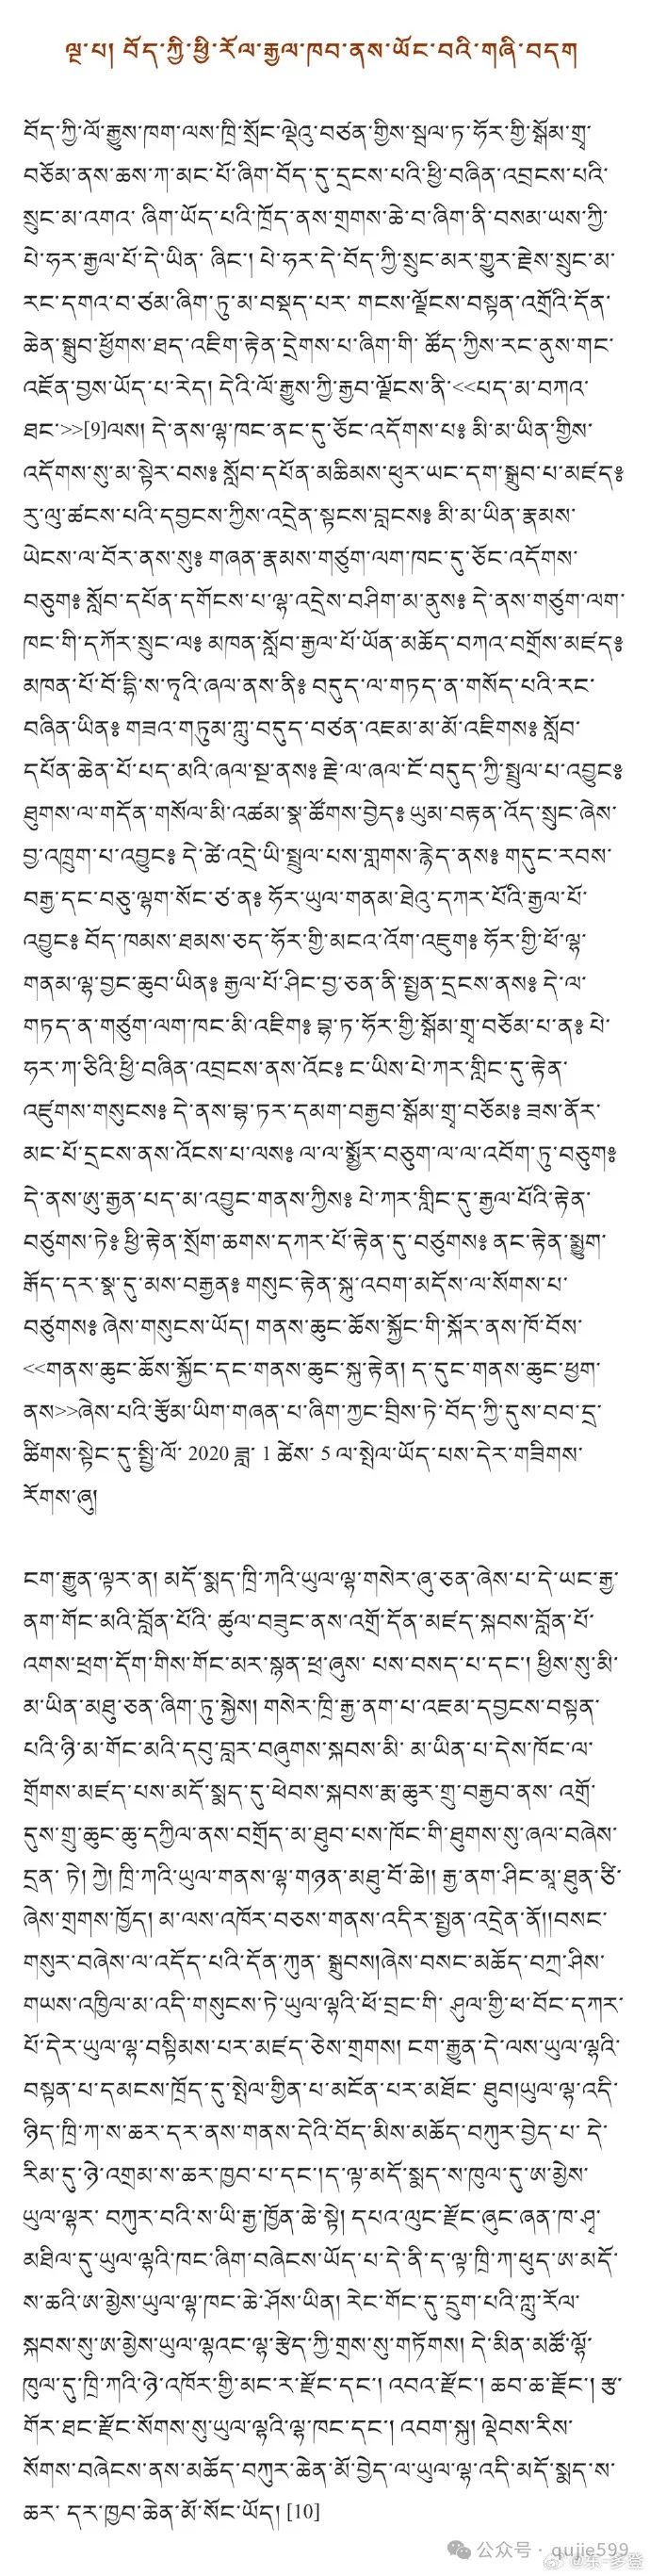 ལྔ་པ། བོད་ཀྱི་ཕྱི་རོལ་རྒྱལ་ཁབ་ནས་ཡོང་བའི་གཞི་བདག
བོད་ཀྱི་ལོ་རྒྱུས་ཁག་ལས་ཁྲི་སྲོང་ལྡེའུ་བཙན་གྱིས་སྦལ་ཏ་ཧོར་གྱི་སྒོམ་གྲྭ་
བཅོམ་ནས་ཆས་ཀ་མང་པོ་ཞིག་བོད་དུ་དྲངས་པའི་ཕྱི་བཞིན་འབྲངས་པའི་
སྲུང་མ་འགའ་ ཞིག་ཡོད་པའི་ཁྲོད་ནས་གྲགས་ཆེ་བ་ཞིག་ནི་བསམ་ཡས་ཀྱི་
པེ་ཧར་རྒྱལ་པོ་དེ་ཡིན་ ཞིང་། པེ་ཧར་དེ་བོད་ཀྱི་སྲུང་མར་གྱུར་རྗེས་སྲུང་མ་
རང་དགའ་བ་ཙམ་ཞིག་ཏུ་མ་བསྡད་པར་ གངས་ལྗོངས་བསྟན་འགྲོའི་དོན་
ཆེན་སྒྲུབ་ཕྱོགས་ཐད་འཇིག་རྟེན་དྲེགས་པ་ཞིག་གི་ ཚོད་ཀྱིས་རང་ནུས་གང་
འཛོན་བྱས་ཡོད་པ་རེད། དེའི་ལོ་རྒྱུས་ཀྱི་རྒྱབ་ལྗོངས་ནི་<<པད་མ་བཀའ་
ཐང་>>[9]ལས། དེ་ནས་ལྷ་ཁང་ནང་དུ་ཅོང་འདོགས་པ༔ མི་མ་ཡིན་གྱིས་
འདོགས་སུ་མ་སྟེར་བས༔ སློབ་དཔོན་མཆིམས་ཕུར་ཡང་དག་སྒྲུབ་པ་མཛད༔
རུ་ལུ་ཚངས་པའི་དབྱངས་ཀྱིས་འདྲེན་སྟངས་བླངས༔ མི་མ་ཡིན་རྣམས་
ཡེངས་ལ་བོར་ནས་སུ༔ གཞན་རྣམས་གཙུག་ལག་ཁང་དུ་ཅོང་འདོགས་
བཅུག༔ སློབ་དཔོན་དགོངས་པ་ལྷ་འདྲེས་བཤིག་མ་ནུས༔ དེ་ནས་གཙུག་ལག་
ཁང་གི་དཀོར་སྲུང་ལ༔ མཁན་སློབ་རྒྱལ་པོ་ཡོན་མཆོད་བཀའ་བགྲོས་མཛད༔
མཁན་པོ་བོ་དྷི་ས་ཏྭའི་ཞལ་ནས་ནི༔ བདུད་ལ་གཏད་ན་གསོད་པའི་རང་
བཞིན་ཡིན༔ གཟའ་གཏུམ་ཀླུ་བདུད་བཙན་འཇམ་མ་མོ་འཇིགས༔ སློབ་
དཔོན་ཆེན་པོ་པད་མའི་ཞལ་སྔ་ནས༔ རྗེ་ལ་ཞལ་ངོ་བདུད་ཀྱི་སྤྲུལ་པ་འབྱུང༔
ཐུགས་ལ་གདོན་གསོལ་མི་འཚམ་སྣ་ཚོགས་བྱེད༔ ཡུམ་བརྟན་འོད་སྲུང་ཞེས་
བྱ་འཁྲུག་པ་འབྱུང༔ དེ་ཚེ་འདྲེ་ཡི་སྤྲུལ་པས་གླགས་རྙེད་ནས༔ གདུང་རབས་
བརྒྱ་དང་བཅུ་ལྷག་སོང་ཙ་ན༔ ཧོར་ཡུལ་གནམ་ཐེའུ་དཀར་པོའི་རྒྱལ་པོ་
འབྱུང༔ བོད་ཁམས་ཐམས་ཅད་ཧོར་གྱི་མངའ་འོག་འཇུག༔ ཧོར་གྱི་ཕོ་ལྷ་
གནམ་ལྷ་བྱང་ཆུབ་ཡིན༔ རྒྱལ་པོ་ཤིང་བྱ་ཅན་ནི་སྤྱན་དྲངས་ནས༔ དེ་ལ་
གཏད་ན་གཙུག་ལག་ཁང་མི་འཇིག༔ བྷ་ཏ་ཧོར་གྱི་སྒོམ་གྲྭ་བཅོམ་པ་ན༔ པེ་
ཧར་ཀ་ཅིའི་ཕྱི་བཞིན་འབྲངས་ནས་འོང༔ ང་ཡིས་པེ་ཀར་གླིང་དུ་རྟེན་
འཛུགས་གསུངས༔ དེ་ནས་བྷ་ཏར་དམག་བརྒྱབ་སྒོམ་གྲྭ་བཅོམ༔ ཟས་ནོར་
མང་པོ་དྲངས་ནས་འོངས་པ་ལས༔ ལ་ལ་སྨྱོར་བཅུག་ལ་ལ་འབོག་ཏུ་བཅུག༔
དེ་ནས་ཨུ་རྒྱན་པད་མ་འབྱུང་གནས་ཀྱིས༔ པེ་ཀར་གླིང་དུ་རྒྱལ་པོའི་རྟེན་
བཙུགས་ཏེ༔ ཕྱི་རྟེན་སྲོག་ཆགས་དཀར་པོ་རྟེན་དུ་བཙུགས༔ ནང་རྟེན་སྨྱུག་
རྒོད་དར་སྣ་དུ་མས་བརྒྱན༔ གསུང་རྟེན་སྐུ་འབག་མདོས་ལ་སོགས་པ་
བཙུགས༔ ཞེས་གསུངས་ཡོད། གནས་ཆུང་ཆོས་སྐྱོང་གི་སྐོར་ནས་ཁོ་བོས་
<<གནས་ཆུང་ཆོས་སྐྱོང་དང་གནས་ཆུང་སྐུ་རྟེན། ད་དུང་གནས་ཆུང་ཕྱག་
ནས>>ཞེས་པའི་རྩོམ་ཡིག་གཞན་པ་ཞིག་ཀྱང་བྲིས་ཏེ་བོད་ཀྱི་དུས་བབ་དྲ་
ཚིགས་སྟེང་དུ་སྤྱི་ལོ་ 2020 ཟླ་ 1 ཚེས་ 5 ལ་སྤེལ་ཡོད་པས་དེར་གཟིགས་
རོགས་ཞུ།
ངག་རྒྱུན་ལྟར་ན། མདོ་སྨད་ཁྲི་ཀའི་ཡུལ་ལྷ་གསེར་ཞུ་ཅན་ཞེས་པ་དེ་ཡང་རྒྱ་
ནག་གོང་མའི་བློན་པོའི་ ཚུལ་བཟུང་ནས་འགྲོ་དོན་མཛད་སྐབས་བློན་པོ་
འགས་ཕྲག་དོག་གིས་གོང་མར་སྙན་ཕྲ་ཞུས་ པས་བསད་པ་དང་། ཕྱིས་སུ་མི་
མ་ཡིན་མཐུ་ཅན་ཞིག་ཏུ་སྐྱེས། གསེར་ཁྲི་རྒྱ་ནག་པ་འཇམ་དབྱངས་བསྟན་
པའི་ཉི་མ་གོང་མའི་དབུ་བླར་བཞུགས་སྐབས་མི་ མ་ཡིན་པ་དེས་ཁོང་ལ་
གྲོགས་མཛད་པས་མདོ་སྨད་དུ་ཕེབས་སྐབས་རྨ་ཆུར་གྲུ་བརྒྱབ་ནས་ འགྲོ་
དུས་གྲུ་ཆུང་ཆུ་དཀྱིལ་ནས་བགྲོད་མ་ཐུབ་པས་ཁོང་གི་ཐུགས་སུ་ཞལ་བཞེས་
དྲན་ ཏེ། ཀྱེ། ཁྲི་ཀའི་ཡུལ་གནས་ལྷ་གཉན་མཐུ་བོ་ཆེ།། རྒྱ་ནག་ཤིང་མཱ་ཐུན་ཙི་
ཞེས་གྲགས་ཁྱོད། མ་ལས་འཁོར་བཅས་གནས་འདིར་སྤྱན་འདྲེན་ནོ།།བསང་
གསུར་བཞེས་ལ་འདོད་པའི་དོན་ཀུན་ སྒྲུབས།ཞེས་བསང་མཆོད་བཀྲ་ཤིས་
གཡས་འཁྱིལ་མ་འདི་གསུངས་ཏེ་ཡུལ་ལྷའི་ཕོ་བྲང་གི་ ཤུལ་གྱི་ཕ་བོང་དཀར་
པོ་དེར་ཡུལ་ལྷ་བསྟིམས་པར་མཛད་ཅེས་གྲགས། ངག་རྒྱུན་དེ་ལས་ཡུལ་ལྷའི་
བསྟན་པ་དམངས་ཁྲོད་དུ་སྤེལ་གྱིན་པ་མངོན་པར་མཐོང་ ཐུབ།ཡུལ་ལྷ་འདི་
ཉིད་ཁྲི་ཀ་ས་ཆར་དར་ནས་གནས་དེའི་བོད་མིས་མཆོད་བཀུར་བྱེད་པ་ དེ་
རིམ་དུ་ཉེ་འགྲམ་ས་ཆར་ཁྱབ་པ་དང་།ད་ལྟ་མདོ་སྨད་ས་ཁུལ་དུ་ཨ་མྱེས་
ཡུལ་ལྷར་ བཀུར་བའི་ས་ཡི་རྒྱ་ཁྱོན་ཆེ་སྟེ། དཔའ་ལུང་རྫོང་ཞུང་ཞན་ཁ་ཤྭ་
མཐིལ་དུ་ཡུལ་ལྷའི་ཁང་ཞིག་བཞེངས་ཡོད་པ་དེ་ནི་ད་ལྟ་ཁྲི་ཀ་ཕུད་ཨ་མདོ་
ས་ཆའི་ཨ་མྱེས་ཡུལ་ལྷ་ཁང་ཆེ་ཤོས་ཡིན། རེང་གོང་དུ་དྲུག་པའི་ཀླུ་རོལ་
སྐབས་སུ་ཨ་མྱེས་ཡུལ་ལྷའང་ལྷ་རྩེད་ཀྱི་གྲས་སུ་གཏོགས། དེ་མིན་མཚོ་ལྷོ་
ཁུལ་དུ་ཁྲི་ཀའི་ཉེ་འཁོར་གྱི་མང་ར་རྫོང་དང་། འབའ་རྫོང་། ཆབ་ཆ་རྫོང་། རྩ་
གོར་ཐང་རྫོང་སོགས་སུ་ཡུལ་ལྷའི་ལྷ་ཁང་དང་། འབག་སྐུ། ལྡེབས་རིས་
སོགས་བཞེངས་ནས་མཆོད་བཀུར་ཆེན་མོ་བྱེད་ལ་ཡུལ་ལྷ་འདི་མདོ་སྨད་ས་
ཆར་ དར་ཁྱབ་ཆེན་མོ་སོང་ཡོད། [10]
公众号 · qujie599
@东-多登